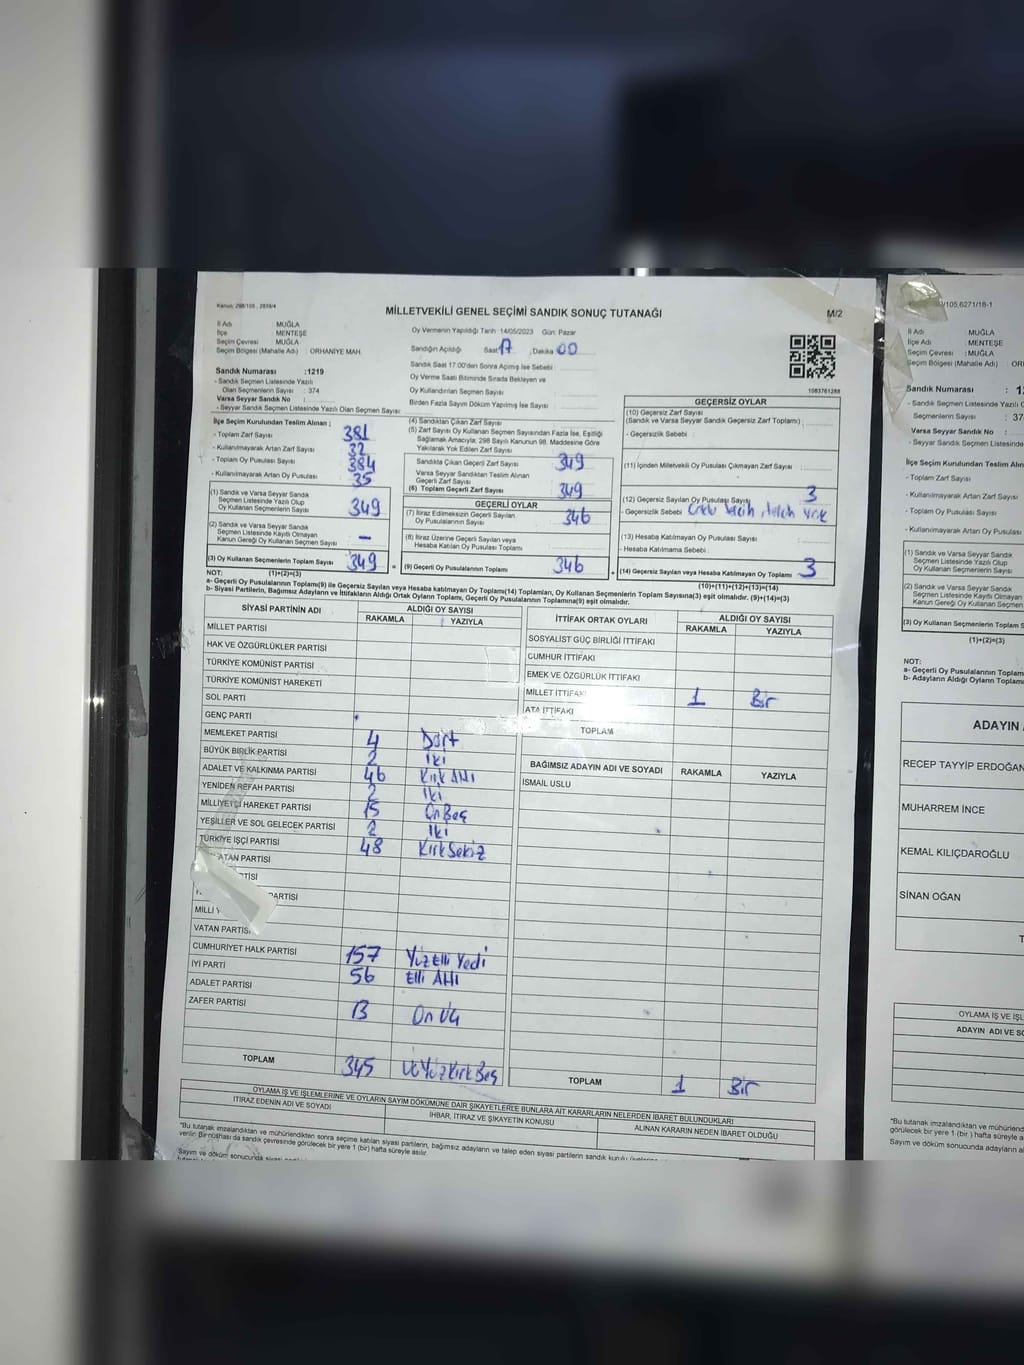 Kanun: 298/105 , 2839/4
MİLLETVEKİLİ GENEL SEÇİMİ SANDIK SONUÇ TUTANAĞI
M/2
İl Adı : MUĞLA
İlçe : MENTEŞE
Seçim Çevresi : MUĞLA
Seçim Bölgesi (Mahalle Adı) : ORHANİYE MAH.
Oy Vermenin Yapıldığı Tarih 14/05/2023 Gün: Pazar
Sandığın Açıldığı Saat 17 , Dakika 00
Sandık Saat 17.00'den Sonra Açılmış İse Sebebi
Oy Verme Saati Bitiminde Sırada Bekleyen ve
Oy Kullandırılan Seçmen Sayısı
Birden Fazla Sayım Döküm Yapılmış İse Sayısı
1083761288
Sandık Numarası :1219
- Sandık Seçmen Listesinde Yazılı
Olan Seçmenlerin Sayısı : 374
Varsa Seyyar Sandık No :
- Seyyar Sandık Seçmen Listesinde Yazılı Olan Seçmen Sayısı
İlçe Seçim Kurulundan Teslim Alınan ;
- Toplam Zarf Sayısı 381
- Kullanılmayarak Artan Zarf Sayısı 32
- Toplam Oy Pusulası Sayısı 384
- Kullanılmayarak Artan Oy Pusulası 35
(1) Sandık ve Varsa Seyyar Sandık
Seçmen Listesinde Yazılı Olup
Oy Kullanan Seçmenlerin Sayısı 349
(2) Sandık ve Varsa Seyyar Sandık
Seçmen Listesinde Kayıtlı Olmayan
Kanun Gereği Oy Kullanan Seçmen Sayısı -
(3) Oy Kullanan Seçmenlerin Toplam Sayısı 349 =
(4) Sandıktan Çıkan Zarf Sayısı
(5) Zarf Sayısı Oy Kullanan Seçmen Sayısından Fazla İse, Eşitliği
Sağlamak Amacıyla; 298 Sayılı Kanunun 98. Maddesine Göre
Yakılarak Yok Edilen Zarf Sayısı
Sandıkta Çıkan Geçerli Zarf Sayısı 349
Varsa Seyyar Sandıktan Teslim Alınan
Geçerli Zarf Sayısı
(6) Toplam Geçerli Zarf Sayısı 349
GEÇERLİ OYLAR
(7) İtiraz Edilmeksizin Geçerli Sayılan
Oy Pusulalarının Sayısı 346
(8) İtiraz Üzerine Geçerli Sayılan veya
Hesaba Katılan Oy Pusulası Toplamı
(9) Geçerli Oy Pusulalarının Toplamı 346 +
GEÇERSİZ OYLAR
(10) Geçersiz Zarf Sayısı
(Sandık ve Varsa Seyyar Sandık Geçersiz Zarf Toplamı) :
- Geçersizlik Sebebi :
(11) İçinden Milletvekili Oy Pusulası Çıkmayan Zarf Sayısı
(12) Geçersiz Sayılan Oy Pusulası Sayısı 3
- Geçersizlik Sebebi
(13) Hesaba Katılmayan Oy Pusulası Sayısı :
- Hesaba Katılmama Sebebi :
(14) Geçersiz Sayılan veya Hesaba Katılmayan Oy Toplamı 3
NOT: (1)+(2)=(3)
(10)+(11)+(12)+(13)=(14)
a- Geçerli Oy Pusulalarının Toplamı(9) ile Geçersiz Sayılan veya Hesaba katılmayan Oy Toplamı(14) Toplamları, Oy Kullanan Seçmenlerin Toplam Sayısına(3) eşit olmalıdır. (9)+(14)=(3)
b- Siyasi Partilerin, Bağımsız Adayların ve İttifakların Aldığı Oy Toplamı, Geçerli Oy Pusulalarının Toplamına(9) eşit olmalıdır.
SİYASİ PARTİNİN ADI ALDIĞI OY SAYISI
RAKAMLA YAZIYLA
MİLLET PARTİSİ
HAK VE ÖZGÜRLÜKLER PARTİSİ
TÜRKİYE KOMÜNİST PARTİSİ
TÜRKİYE KOMÜNİST HAREKETİ
SOL PARTİ
GENÇ PARTİ
MEMLEKET PARTİSİ 4 Dört
BÜYÜK BİRLİK PARTİSİ 2 İki
ADALET VE KALKINMA PARTİSİ 46 Kırk Altı
YENİDEN REFAH PARTİSİ 2 İki
MİLLİYETÇİ HAREKET PARTİSİ 15 On Beş
YEŞİLLER VE SOL GELECEK PARTİSİ 2 İki
TÜRKİYE İŞÇİ PARTİSİ 48 Kırk Sekiz
ATAN PARTİSİ
TİSİ
PARTİSİ
MİLLİ Y
VATAN PARTİSİ
CUMHURİYET HALK PARTİSİ 157 Yüz Elli Yedi
İYİ PARTİ 56 Elli Altı
ADALET PARTİSİ
ZAFER PARTİSİ 13 On Üç
TOPLAM 345 ÜçYüzKırkBeş
İTTİFAK ORTAK OYLARI ALDIĞI OY SAYISI
RAKAMLA YAZIYLA
SOSYALİST GÜÇ BİRLİĞİ İTTİFAKI
CUMHUR İTTİFAKI
EMEK VE ÖZGÜRLÜK İTTİFAKI
MİLLET İTTİFAKI 1 Bir
ATA İTTİFAKI
TOPLAM
BAĞIMSIZ ADAYIN ADI VE SOYADI RAKAMLA YAZIYLA
İSMAİL USLU
TOPLAM 1 Bir
OYLAMA İŞ VE İŞLEMLERİNE VE OYLARIN SAYIM DÖKÜMÜNE DAİR ŞİKAYETLERLE BUNLARA AİT KARARLARIN NELERDEN İBARET BULUNDUKLARI
İTİRAZ EDENİN ADI VE SOYADI İHBAR, İTİRAZ VE ŞİKAYETİN KONUSU ALINAN KARARIN NEDEN İBARET OLDUĞU
"Bu tutanak imzalandıktan ve mühürlendikten sonra seçime katılan siyasi partilerin, bağımsız adayların ve talep eden siyasi partilerin sandık kurulu
verilir. Bir nüshası da sandık çevresinde görülecek bir yere 1 (bir ) hafta süreyle asılır.
Sayım ve döküm sonucunda
/105,6271/18-1
İl Adı : MUĞLA
İlçe Adı : MENTEŞE
Seçim Çevresi : MUĞLA
Seçim Bölgesi (Mahalle Adı) : OR
Sandık Numarası : 1
- Sandık Seçmen Listesinde Yazılı
Seçmenlerin Sayısı : 37
Varsa Seyyar Sandık No :
- Seyyar Sandık Seçmen Listesinde
İlçe Seçim Kurulundan Teslim Alın
- Toplam Zarf Sayısı
- Kullanılmayarak Artan Zarf Sayısı
- Toplam Oy Pusulası Sayısı
- Kullanılmayarak Artan Oy Pusulası
(1) Sandık ve Varsa Seyyar Sandık
Seçmen Listesinde Yazılı Olup
Oy Kullanan Seçmenlerin Sayısı
(2) Sandık ve Varsa Seyyar Sandık
Seçmen Listesinde Kayıtlı Olmayan
Kanun Gereği Oy Kullanan Seçmen
(3) Oy Kullanan Seçmenlerin Toplam
(1)+(2)=(3)
NOT:
a- Geçerli Oy Pusulalarının Toplam
b- Adayların Aldığı Oyların Toplamı
ADAYIN
RECEP TAYYİP ERDOĞAN
MUHARREM İNCE
KEMAL KILIÇDAROĞLU
SİNAN OĞAN
T
OYLAMA İŞ VE İŞL
ADAYIN ADI VE SO
"Bu tutanak imzalandıktan ve müh
görülecek bir yere 1 (bir ) hafta süreyle a
Sayım ve döküm sonucunda adayların al